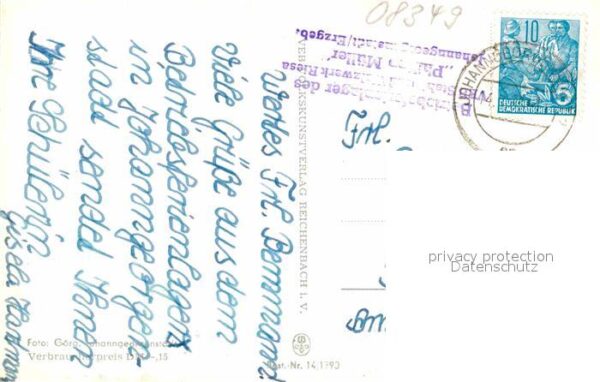 08349
Wertes Frl. Bemmann!
Viele Grüße aus dem
Betriebsferienlager
in Johanngeorgen-
stadt sendet Ihnen
Ihre Schülerin
Gisela
Frl.
VERLAG
REICHENBACH i. V.
Foto: Görg, Johanngeorgenstadt
Verbraucherpreis DM -,15
Best.-Nr. 14/1793
"Philipp Müller"
Johanngeorgenstadt/Erzgeb.
10
5
DEUTSCHE
DEMOKRATISCHE REPUBLIK
privacy protection
Datenschutz